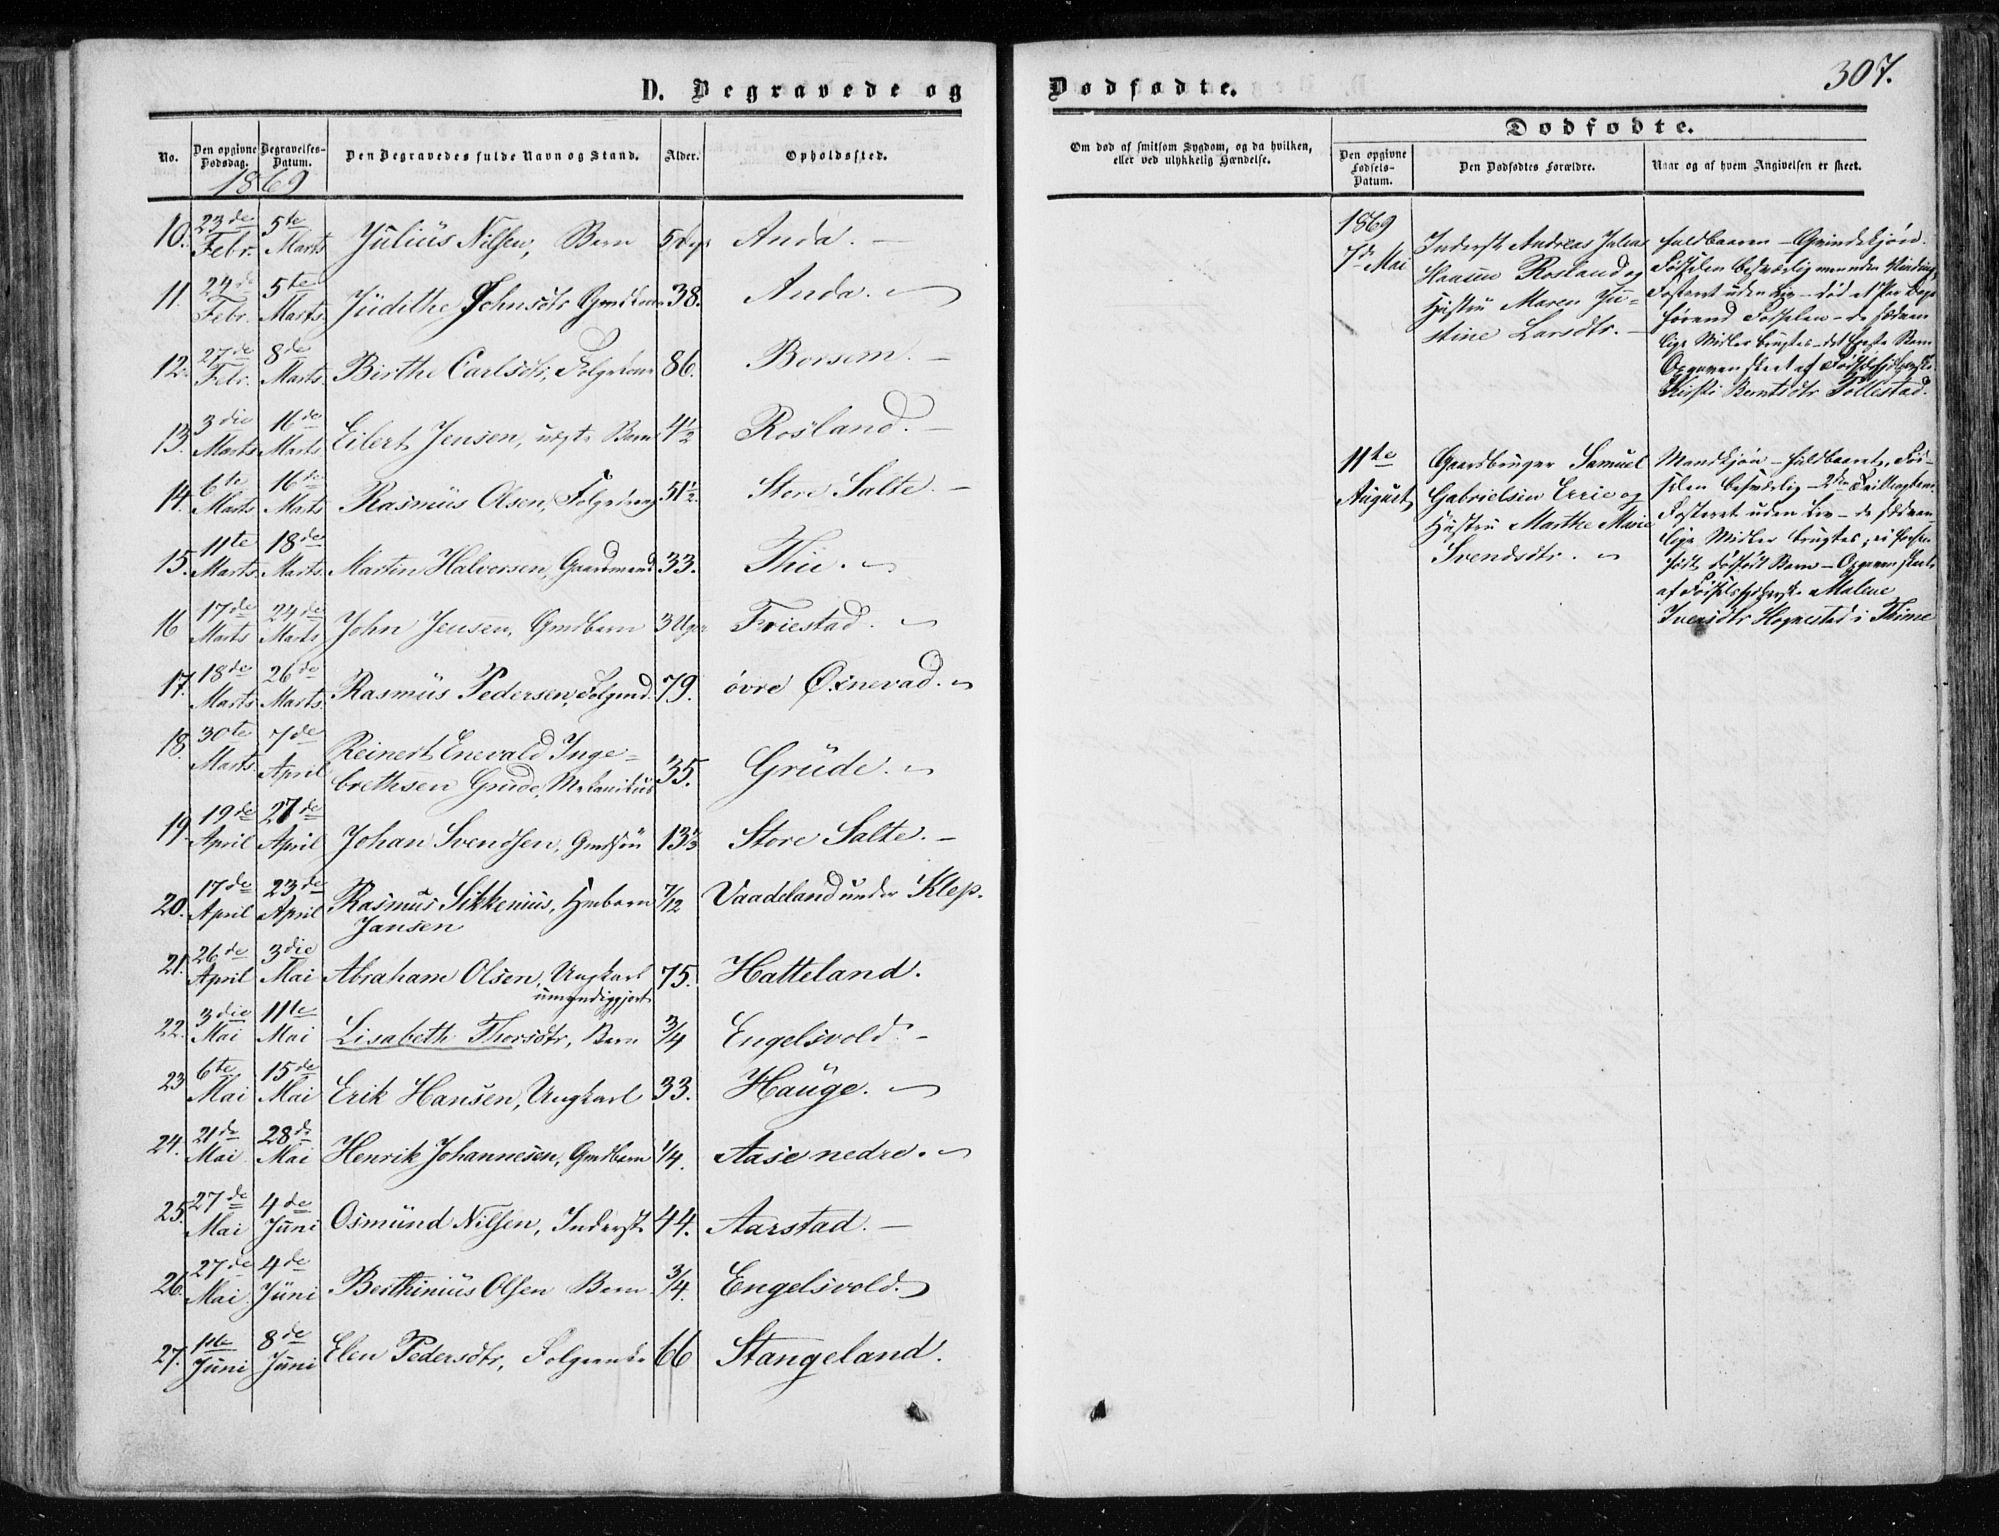 D. Begravede og
No. Den opgivne Dødsdag. Begravelses-Datum. Den Begravedes fulde Navn og Stand. Alder. Opholdssted.
1869
10. 23de Febr. 5te Marts Julius Nilsen, Barn 5 Dage Anda. –
11. 24de Febr. 5te Marts Judithe Johnsdtr Gmdkone 38. Anda. –
12. 27de Febr. 8de Marts Birthe Carlsdtr, Folgekone 86. Borsem. –
13. 3die Marts 16de Marts Eilert Jensen, uægte Barn 4½ Rosland. –
14. 6te Marts 16de Marts Rasmus Olsen, 51½. Store Salte. –
15. 11te Marts 18de Marts Martin Halversen, Gaardmand 33. Thu. –
16 17de Marts 24de Marts John Jensen, Gmdbarn 3 Uger Friestad. –
17. 18de Marts 26de Marts Rasmus Pedersen, Folgmd. 79. øvre Øxnevad. –
18. 30te Marts 7de April Reinert Enevald Inge-
brethsen Grude, Mekanikus 35. Grude. –
19. 19de April 27de April Johan Svendsen, Gmdsøn 13⅓ Store Salte. –
20. 17de April 23de April Rasmus Sikkenius, Hmbarn 7/12 Vaadeland under Klep.
Jansen
21. 26de April 3die Mai Abraham Olsen, Ungkarl 75. Hatteland.
umyndiggjort
22. 3die Mai 11te Mai Lisabeth Thorsdtr, Barn 3/4 Engelsvold. –
23 6te Mai 15de Mai Erik Hansen, Ungkarl 33. Hauge. –
24. 21de Mai 28de Mai Henrik Johannesen, Gmdbarn 1/4. Aase nedre. –
25. 27de Mai 4de Juni Osmund Nilsen, Inderst 44. Aarstad. –
26. 27de Mai. 4de Juni Berthinius Olsen Barn 3/4. Engelsvold. –
27. 1ste Juni 8de Juni Elen Pedersdtr, Folgeenke 66 Stangeland.
Dødfødte. 307.
Om død af smitsom Sygdom, og da hvilken, eller ved ulykkelig Hændelse.
Dødfødte.
Den opgivne Fødsels-Datum. Den Dødfødtes Forældre. Naar og af hvem Angivelsen er skeet.
1869
7de Mai Inderst Andreas Julius
Rosland og
Hustru Maren Ju-
stine Larsdtr. –
fuldbaaren – Qvindekjøn.
Fødselen besværlig
Fosteret uden Liv – død et Par Dage
førend Fødselen – de sædvan-
lige Midler brugtes – det første Barn
Opgaven skeet af
Berntsdtr Tollestad.
11te August Gaardbruger Samuel
Gabrielsen Erria og
Hustru Marthe Marie
Svendsdtr. –
Mandkjøn – fuldbaaret, Fød-
selen besværlig –
Fosteret uden Liv – de sædvan-
lige Midler brugtes,
født dødfødt Barn – Opgaven skeet
af Malene
Iversdtr Hognestad i Thime